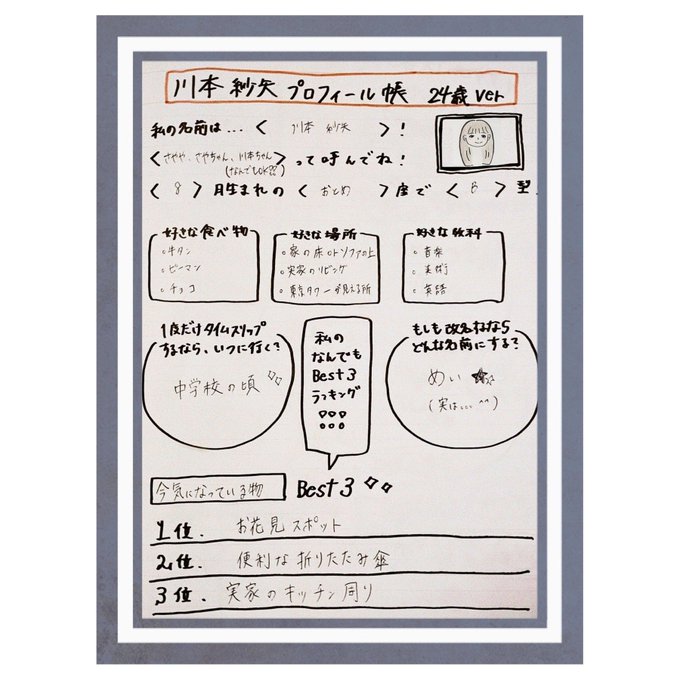 川本紗矢 プロフィール帳 24歳ver
私の名前は…< 川本 紗矢 >!
<さやや、さやちゃん、川本ちゃん>って呼んでね!
(なんでもOK
<8>月生まれの<おとめ>座で<B>型.
好きな食べ物
◦牛タン
◦ピーマン
◦チョコ
好きな場所
◦家の床orソファの上
◦実家のリビング
◦東京タワーが見える所
好きな教科
◦音楽
◦美術
◦英語
1度だけタイムスリップ
するなら、いつに行く?
中学校の頃
私の
なんでも
Best3
ランキング
もしも改名するなら
どんな名前にする?
めい
(実は…. ^^)
今気になっている物
Best3
1位. お花見スポット
2位. 便利な折りたたみ傘
3位. 実家のキッチン周り